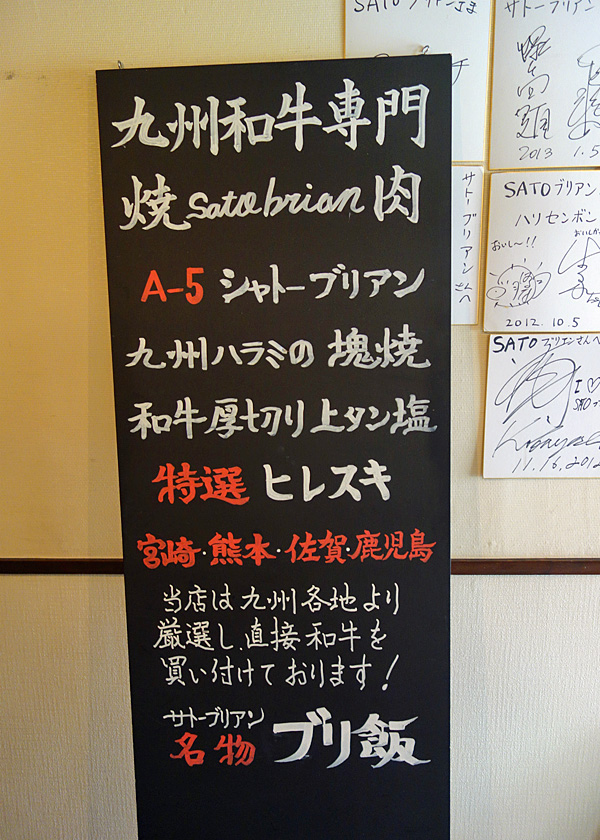 九州和牛専門
焼 Satobrian 肉
A-5 シャトーブリアン
九州ハラミの塊焼
和牛厚切り上タン塩
特選 ヒレスキ
宮崎・熊本・佐賀・鹿児島
当店は九州各地より
厳選し、直接和牛を
買い付けております!
サトーブリアン
名物 ブリ飯
サトーブリアン
2013 1.5
サトーブリアンさんへ
SATOブリアン
ハリセンボン
おいし〜!!
2012.10.5
SATOブリアンさんへ
I ♡
11.16,2012